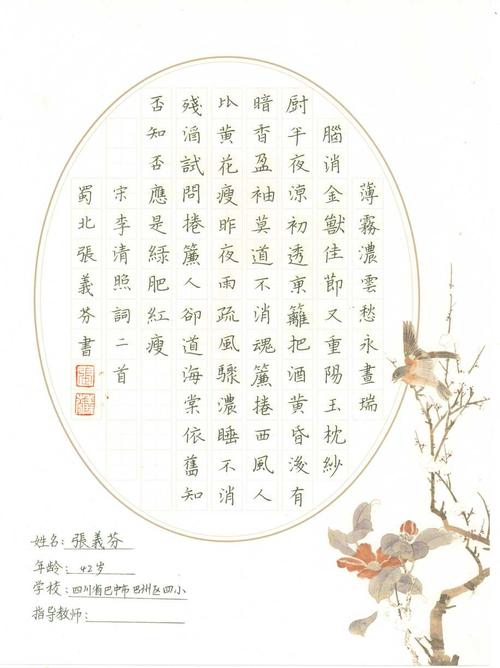 薄霧濃雲愁永晝瑞
腦消金獸佳節又重陽玉枕紗
厨半夜涼初透東籬把酒黄昏後有
暗香盈袖莫道不消魂簾捲西風人
比黄花瘦昨夜雨疏風驟濃睡不消
殘酒試問捲簾人卻道海棠依舊知
否知否應是緑肥紅瘦
宋李清照詞二首
蜀北張義芬書
姓名：張義芬
年龄：42岁
学校：四川省巴中市巴州区四小
指导教师：